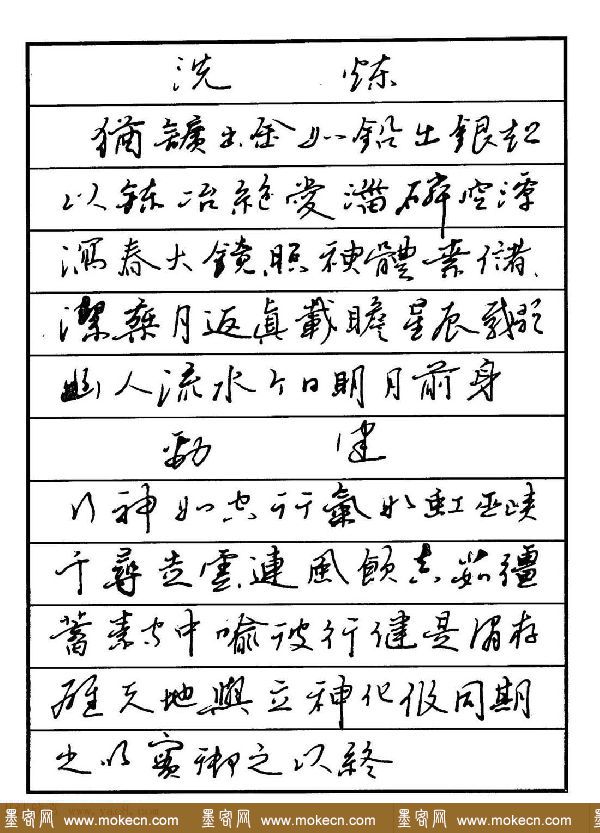 洗 炼
猶鑛出金如鉛出銀超
心鍊冶絕愛淄磷空潭
瀉春古鏡照神體素儲
潔乘月返真載瞻星辰載歌
幽人流水今日明月前身
勁 健
行神如空行氣如虹巫峽
千尋走雲連風飲真茹彊
蓄素守中喻彼行健是謂存
雄天地與立神化攸同期
之以實御之以終
墨客网 www.mokecn.com 墨客网 www.mokecn.com 墨客网 www.mokecn.com